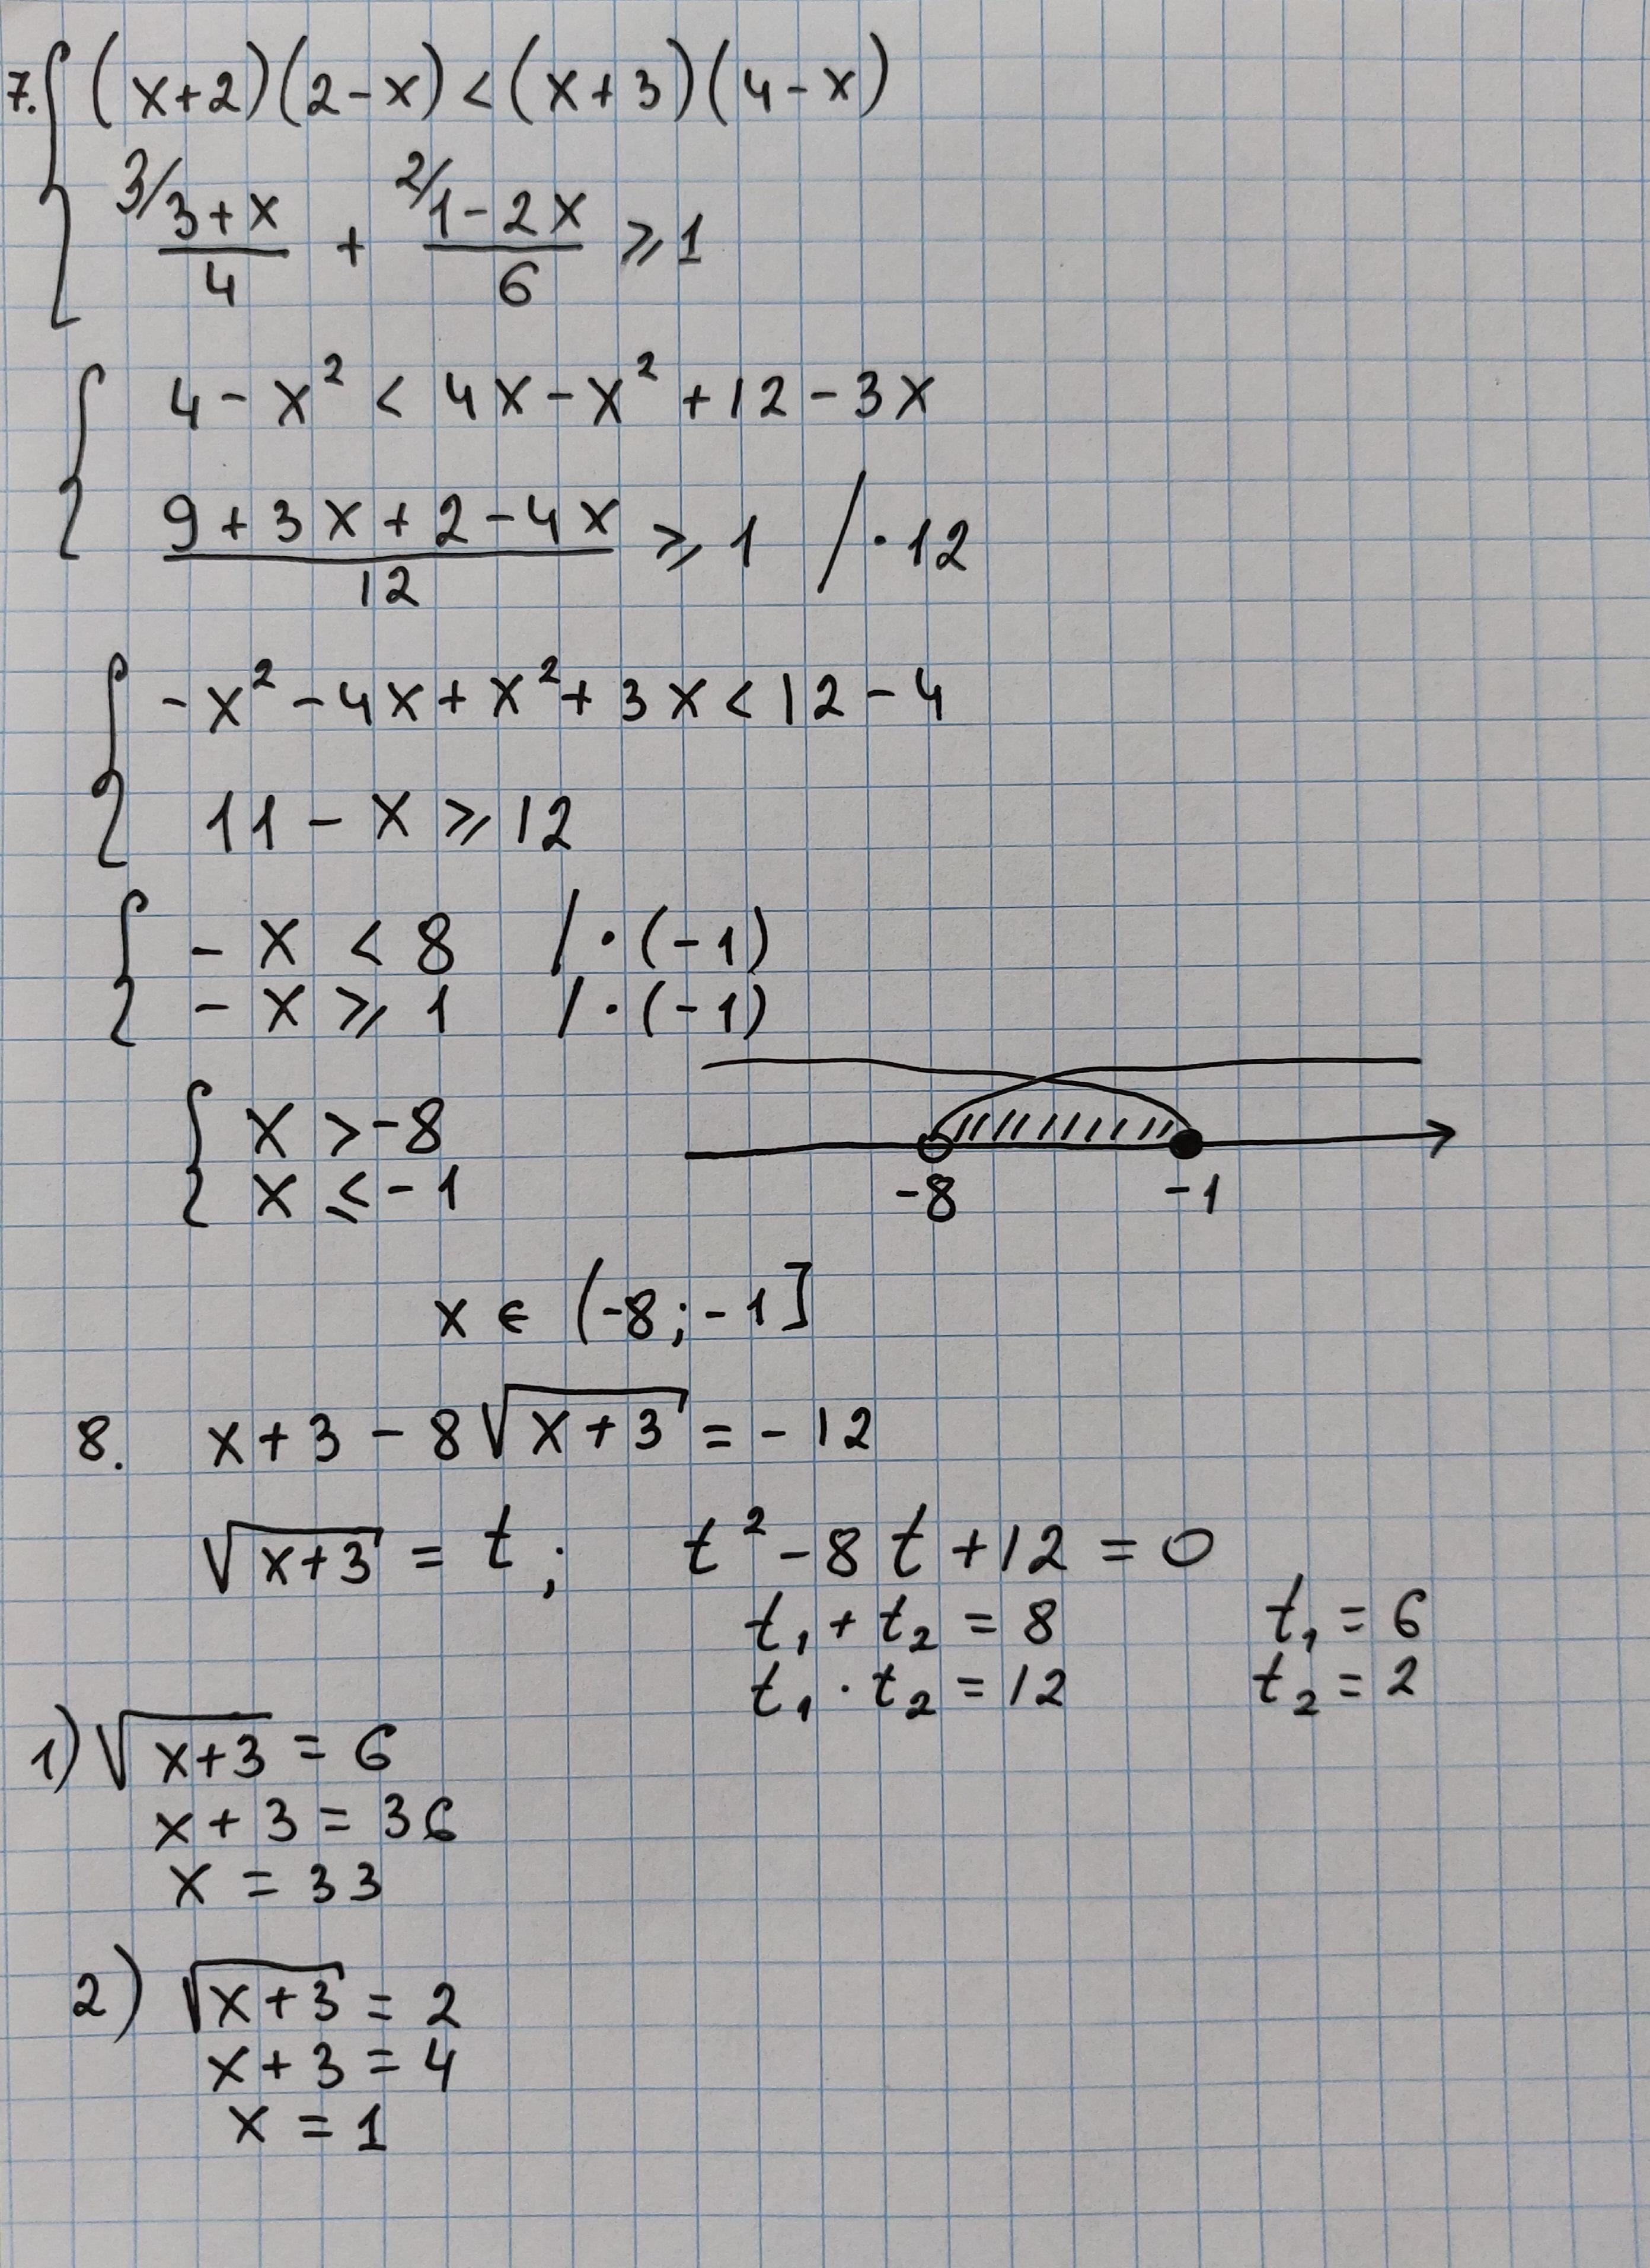 7. { (x+2)(2-x) < (x+3)(4-x)
3/ (3+x)/4 + 2/ (1-2x)/6 ⩾ 1
{ 4 - x² < 4x - x² + 12 - 3x
(9+3x+2-4x)/12 ⩾ 1 / · 12
{ -x² - 4x + x² + 3x < 12 - 4
11 - x ⩾ 12
{ - x < 8 / · (-1)
- x ⩾ 1 / · (-1)
{ x > -8
x ⩽ -1
-8 -1
x ∈ (-8; -1]
8. x + 3 - 8√(x+3) = - 12
√(x+3) = t; t² - 8t + 12 = 0
t₁ + t₂ = 8 t₁ = 6
t₁ · t₂ = 12 t₂ = 2
1) √(x+3) = 6
x + 3 = 36
x = 33
2) √(x+3) = 2
x + 3 = 4
x = 1